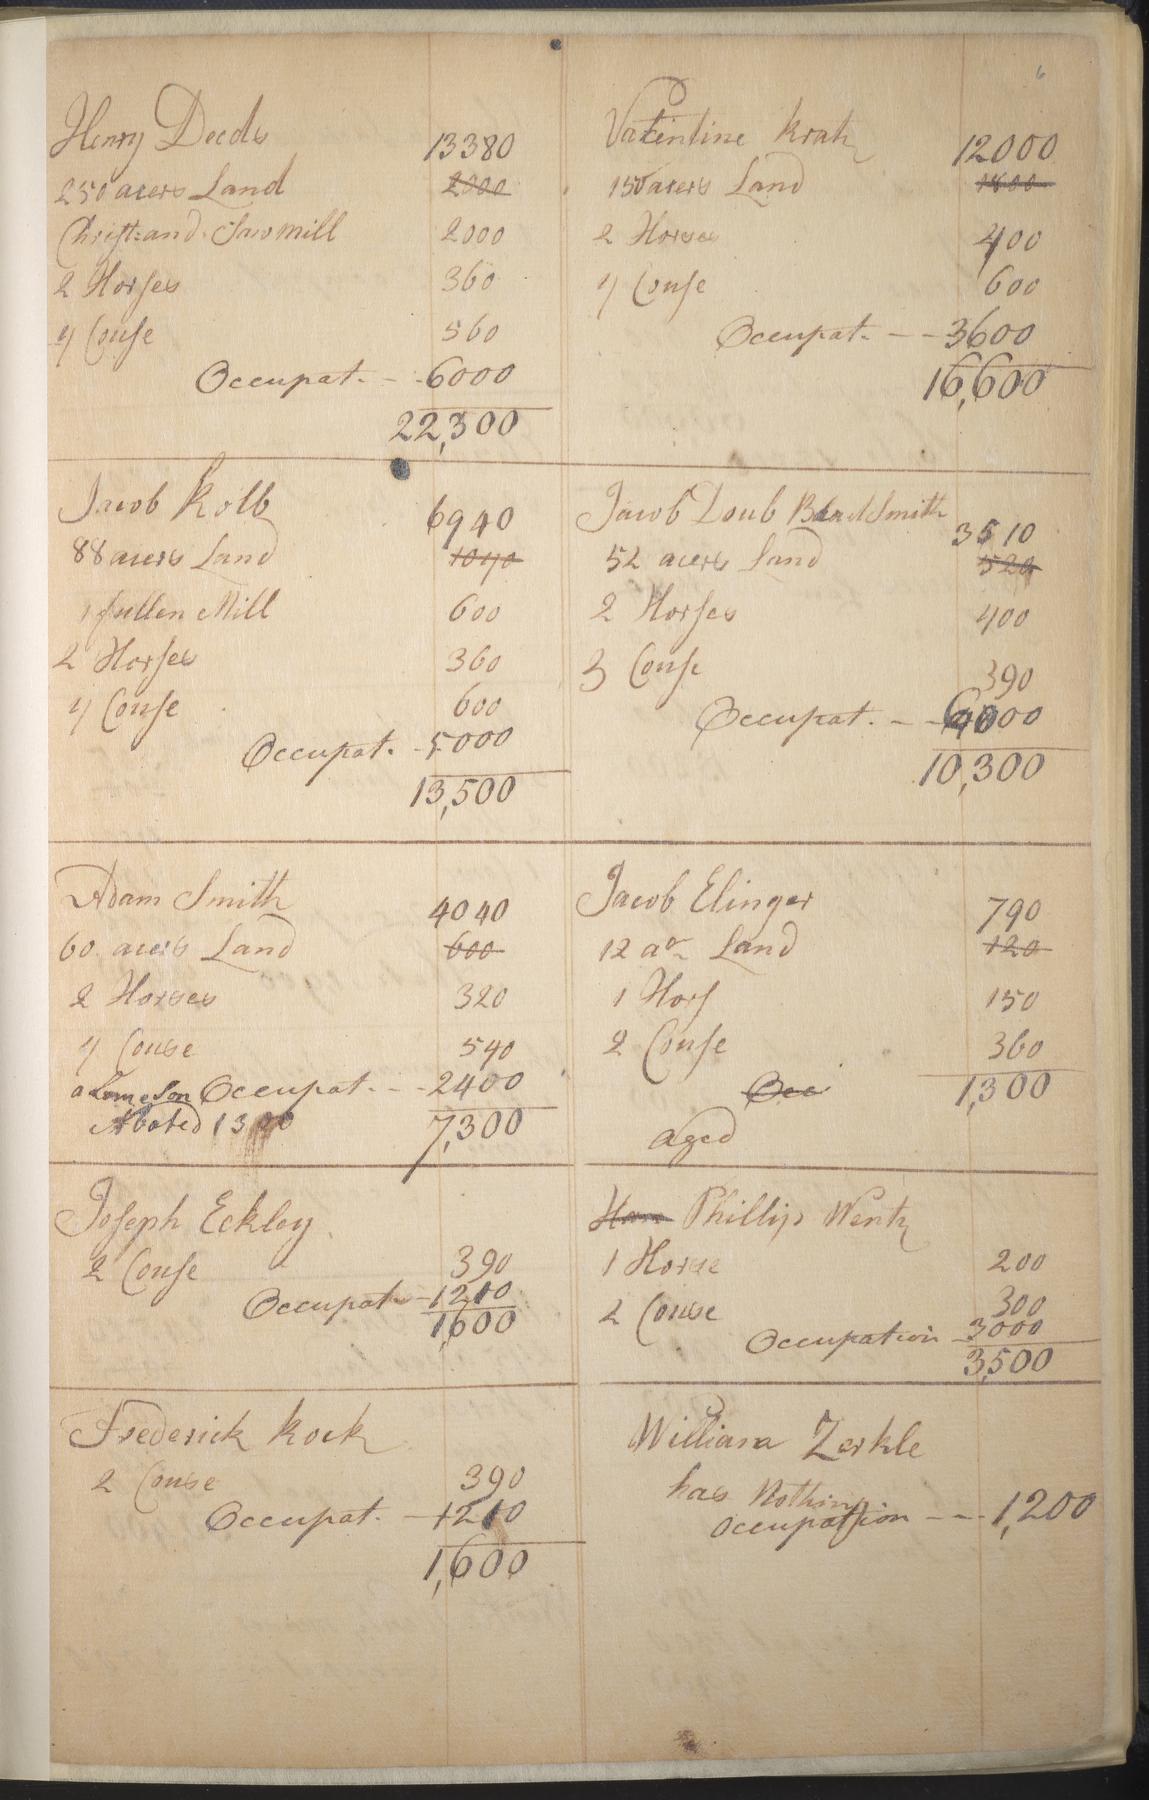 6
Henry Deeds 13380
250 acers Land 2000
Christ: and Sawmill 2000
2 Horses 360
4 Couse 560
Occupat. - - 6000
22,300
Valentine Kratz 12000
150 acers Land 1800
2 Horses 400
4 Couse 600
Occupat. - - 3600
16,600
Jacob Kolb 6940
88 acers Land 1040
1 fullen Mill 600
2 Horses 360
4 Couse 600
Occupat. - 5000
13,500
Jacob Doub BlackSmith 3510
52 acers Land 520
2 Horses 400
3 Couse 390
Occupat. - - 6000
10,300
Adam Smith 4040
60 acers Land 600
2 Horses 320
4 Couse 540
a Lame Son Occupat. - - 2400
Abated 1300 7,300
Jacob Elinger 790
12 acr Land 120
1 Hors 150
2 Couse 360
Occ 1,300
aged
Joseph Eckley
2 Couse 390
Occupat - 1210
1,600
Han Phillip Wentz
1 Horse 200
2 Couse 300
Occupation 3000
3,500
Frederick Kock
2 Couse 390
Occupat. - 1210
1,600
William Zerkle
has Nothing
Occupation - - - 1,200